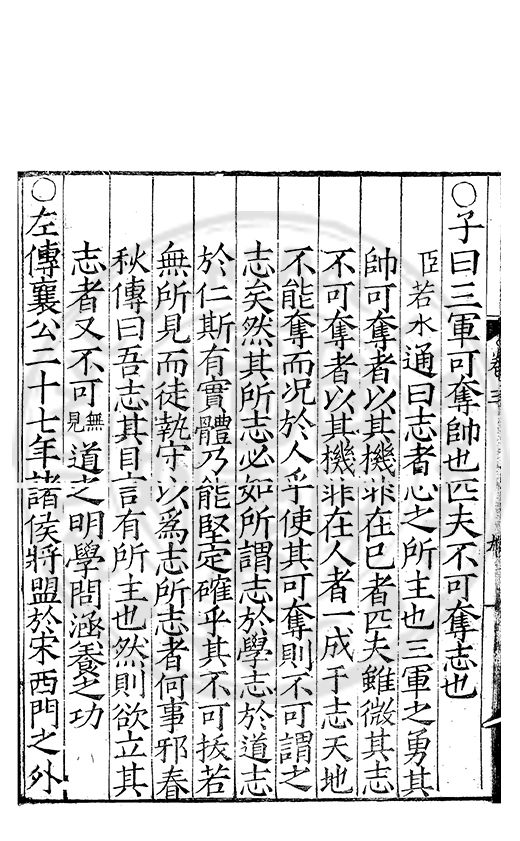 ○子曰三軍可奪帥也匹夫不可奪志也
臣若水通曰志者心之所主也三軍之勇其
帥可奪者以其機非在己者匹夫雖微其志
不可奪者以其機非在人者一成于志天地
不能奪而况於人乎使其可奪則不可謂之
志矣然其所志必如所謂志於學志於道志
於仁斯有實體乃能堅定確乎其不可拔若
無所見而徒執守以爲志所志者何事邪春
秋傳曰吾志其目言有所主也然則欲立其
志者又不可無見道之明學問涵養之功
○左傳襄公二十七年諸侯將盟於宋西門之外